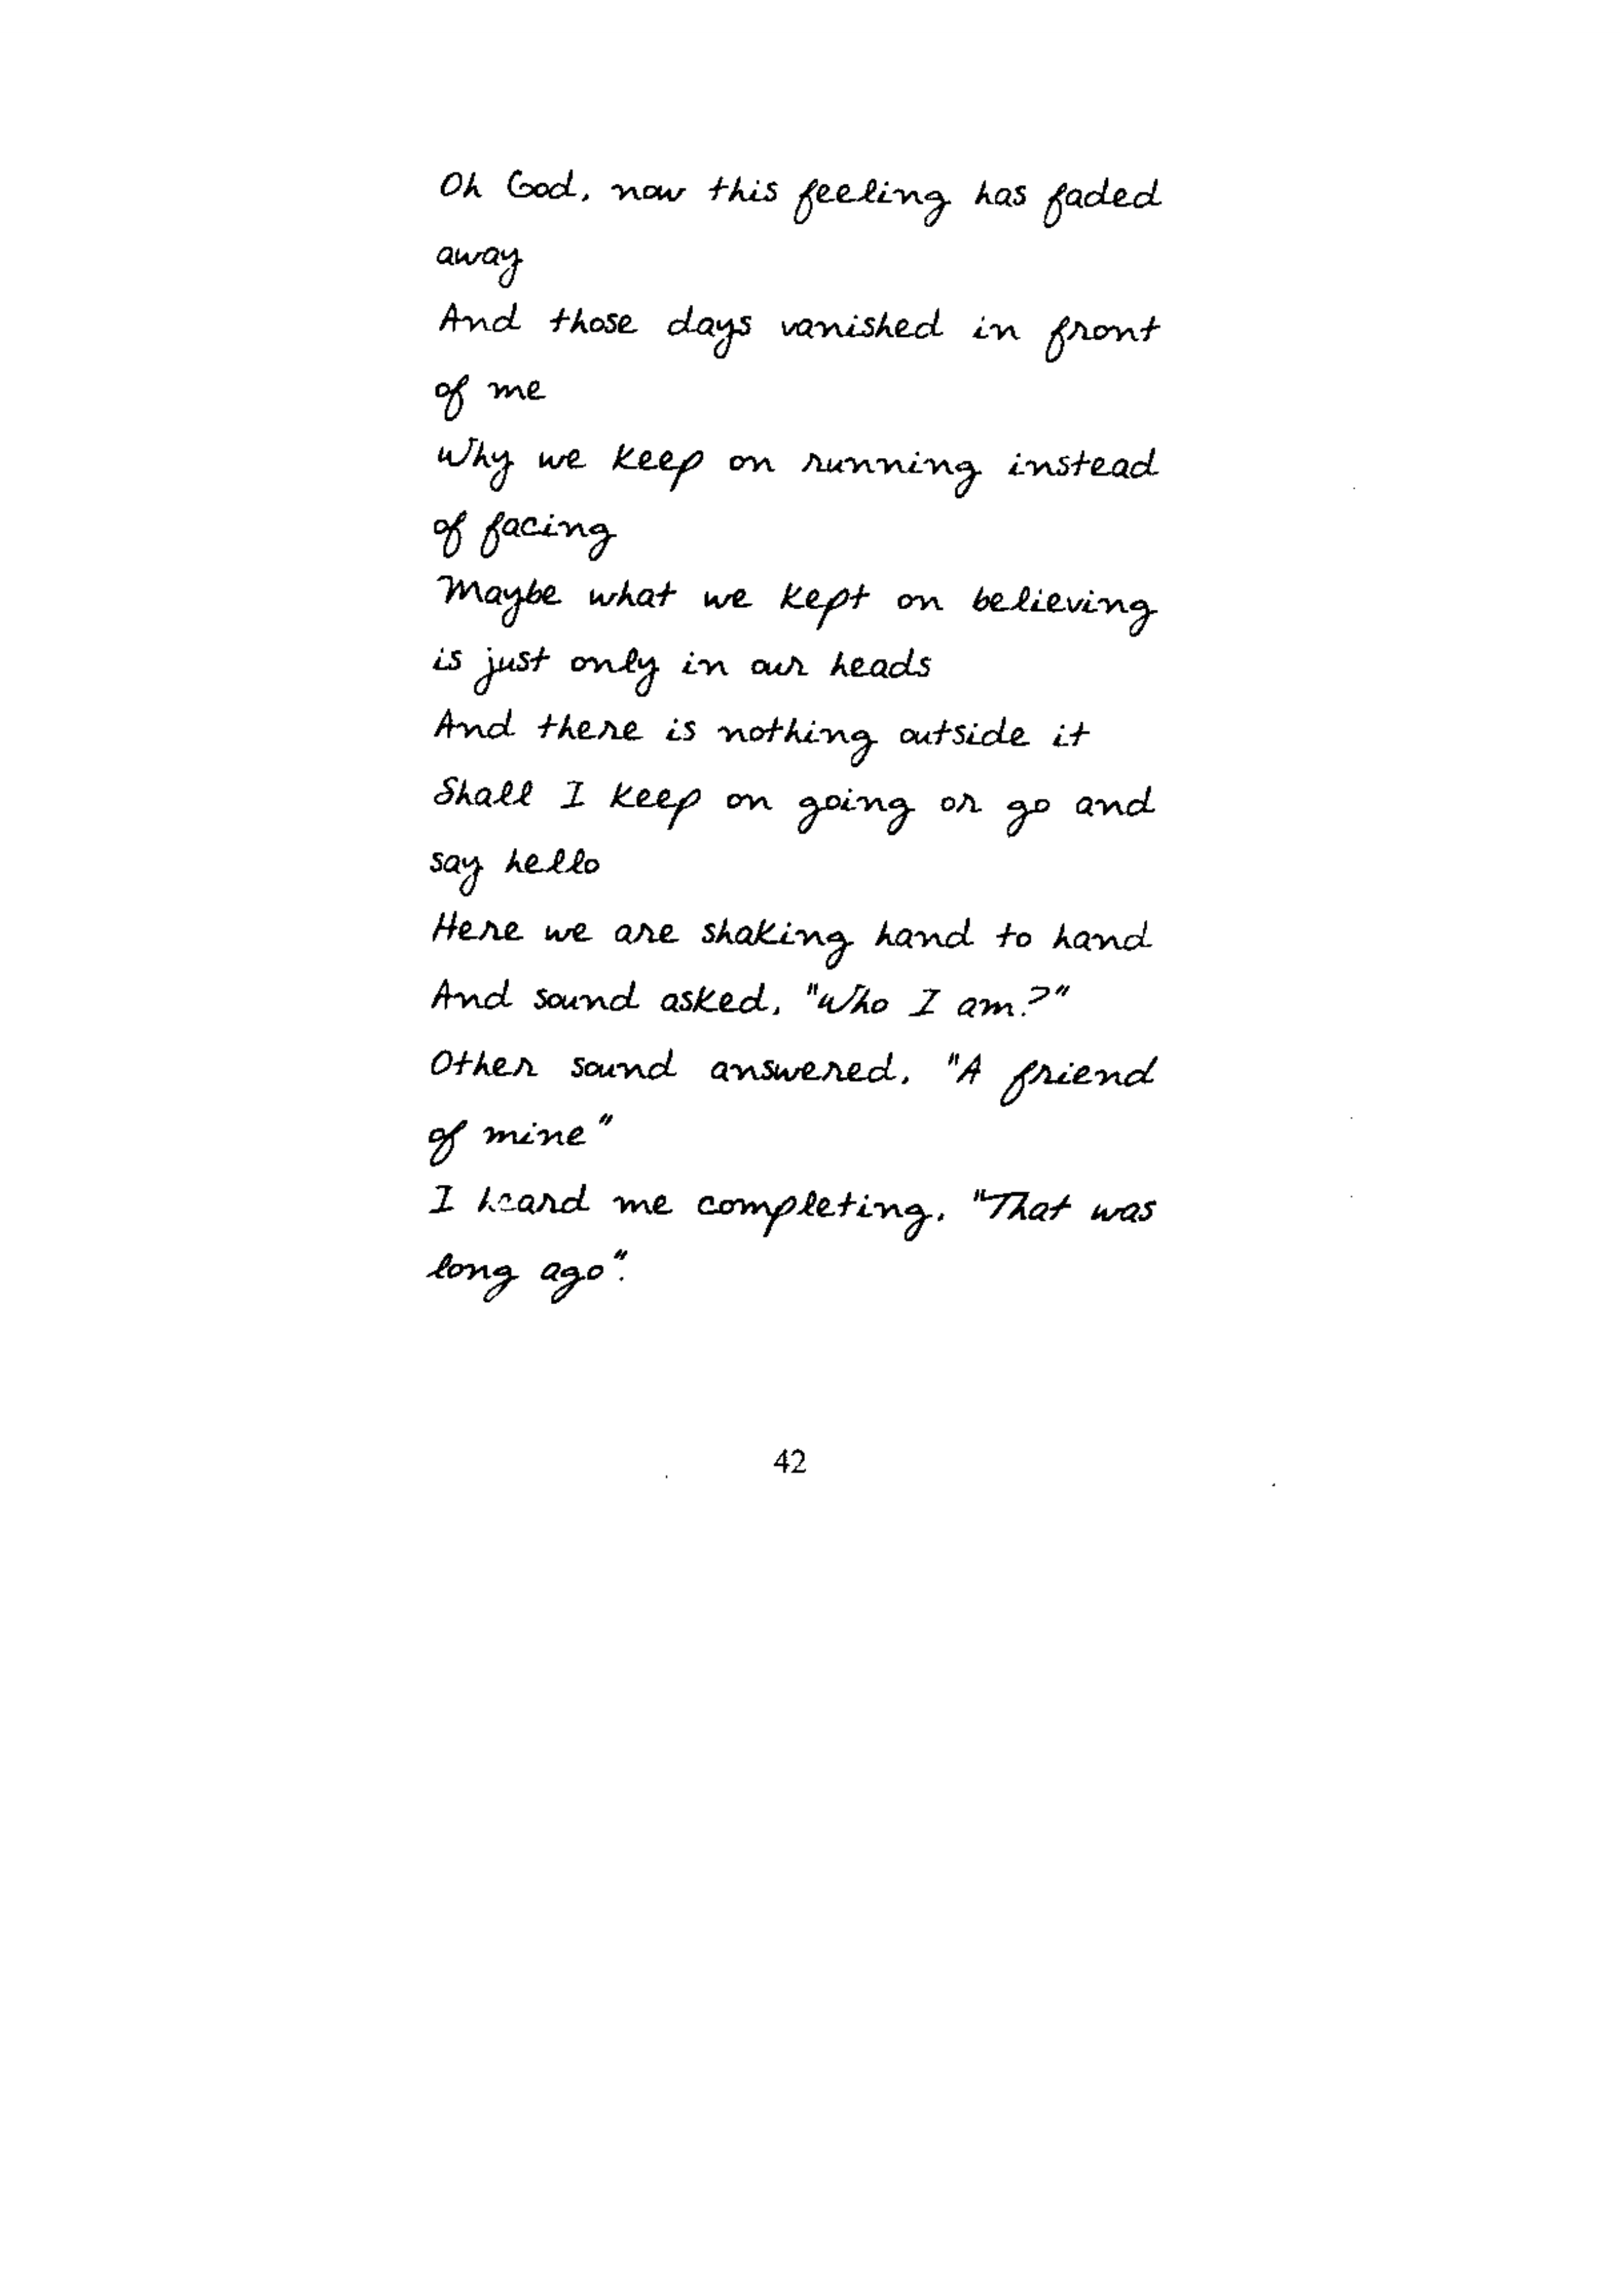 Oh God, now this feeling has faded
away
And those days vanished in front
of me
Why we keep on running instead
of facing
Maybe what we kept on believing
is just only in our heads
And there is nothing outside it
Shall I keep on going or go and
say hello
Here we are shaking hand to hand
And sound asked, "Who I am?"
Other sound answered, "A friend
of mine"
I heard me completing, "That was
long ago".
42